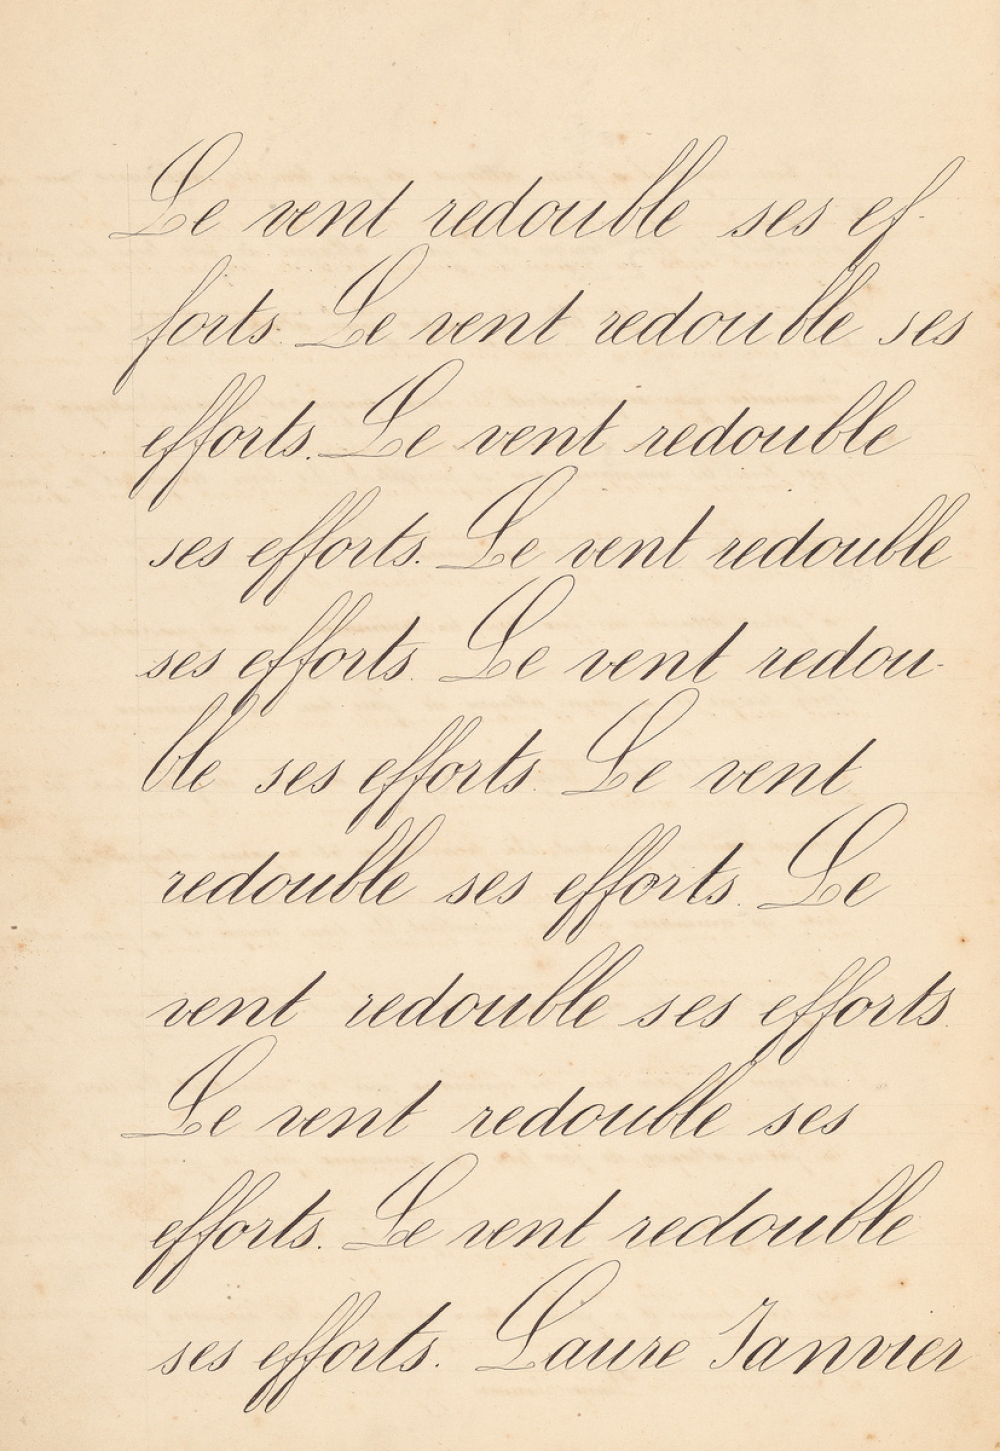 Le vent redouble ses ef-
forts. Le vent redouble ses
efforts. Le vent redouble
ses efforts. Le vent redouble
ses efforts. Le vent redou-
ble ses efforts. Le vent
redouble ses efforts. Le
vent redouble ses efforts.
Le vent redouble ses
efforts. Le vent redouble
ses efforts. Laure Janvier